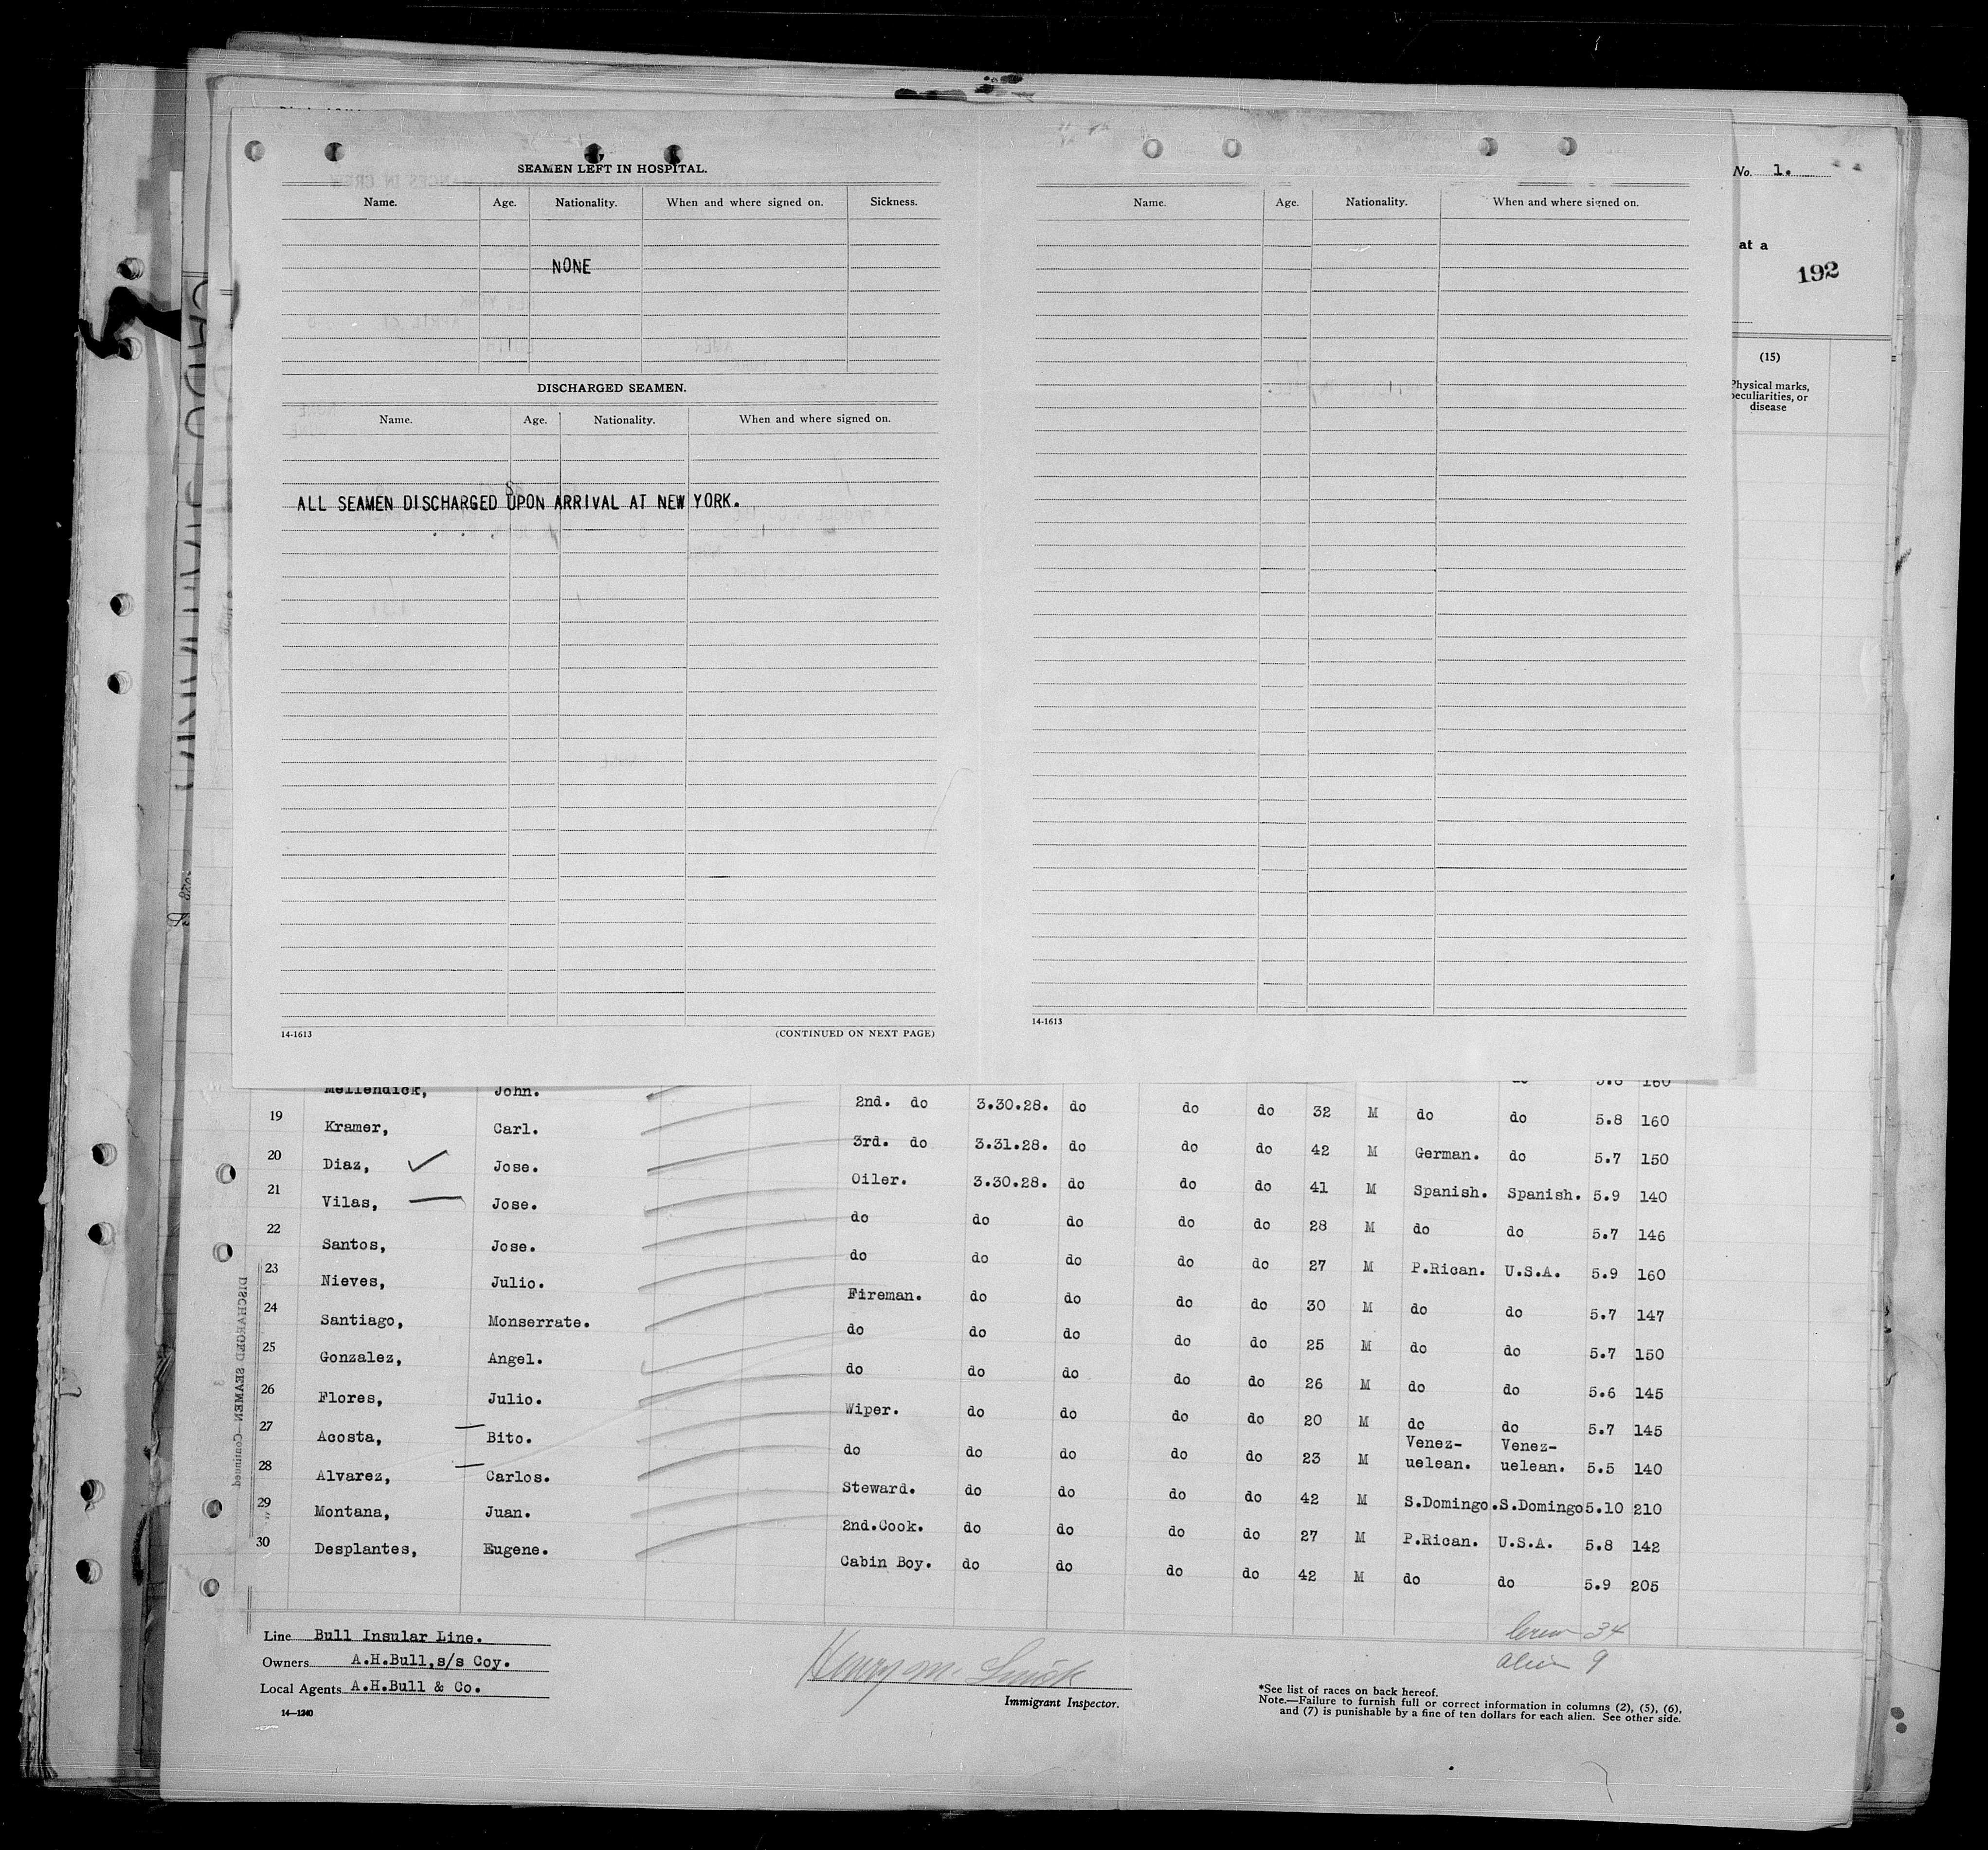 SEAMEN LEFT IN HOSPITAL.
Name. Age. Nationality. When and where signed on. Sickness.
NONE
DISCHARGED SEAMEN.
Name. Age. Nationality. When and where signed on.
ALL SEAMEN DISCHARGED UPON ARRIVAL AT NEW YORK.
14-1613 (CONTINUED ON NEXT PAGE)
Name. Age. Nationality. When and where signed on.
14-1613
No. 1.
at a
192
(15)
Physical marks,
peculiarities, or
disease
do 5.8 160
Mellendick, John. 2nd. do 3.30.28. do do do 32 M do do 5.8 160
19 Kramer, Carl. 3rd. do 3.31.28. do do do 42 M German. do 5.7 150
20 Diaz, Jose. Oiler. 3.30.28. do do do 41 M Spanish. Spanish. 5.9 140
21 Vilas, Jose. do do do do do 28 M do do 5.7 146
22 Santos, Jose. do do do do do 27 M P.Rican. U.S.A. 5.9 160
23 Nieves, Julio. Fireman. do do do do 30 M do do 5.7 147
24 Santiago, Monserrate. do do do do do 25 M do do 5.7 150
25 Gonzalez, Angel. do do do do do 26 M do do 5.6 145
26 Flores, Julio. Wiper. do do do do 20 M do do 5.7 145
27 Acosta, Bito. do do do do do 23 M Venez-uelean. Venez-uelean. 5.5 140
28 Alvarez, Carlos. Steward. do do do do 42 M S.Domingo. S.Domingo 5.10 210
29 Montana, Juan. 2nd.Cook. do do do do 27 M P.Rican. U.S.A. 5.8 142
30 Desplantes, Eugene. Cabin Boy. do do do do 42 M do do 5.9 205
DISCHARGED SEAMEN—Continued
Crew 34
alien 9
Line Bull Insular Line.
Owners A.H.Bull,s/s Coy.
Local Agents A.H.Bull & Co.
14—1240
Immigrant Inspector.
*See list of races on back hereof.
Note.—Failure to furnish full or correct information in columns (2), (5), (6),
and (7) is punishable by a fine of ten dollars for each alien. See other side.